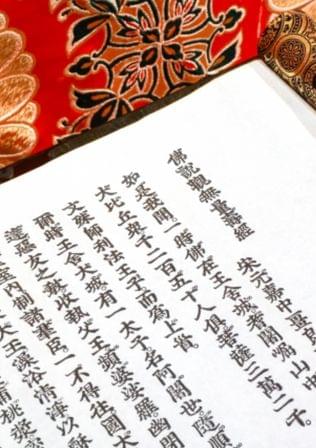 佛說觀無量壽經
宋元嘉中畺良
如是我聞。一時佛在王舍城耆闍崛山中
大比丘眾千二百五十人俱。菩薩三萬二千。
文殊師利法王子而為上首。
爾時王舍大城。有一太子名阿闍世。隨順
達惡友之教。收執父王頻婆娑羅。幽閉
室內。制諸群臣。一不得往。國大
大王。澡浴清淨。以酥
蒲桃漿